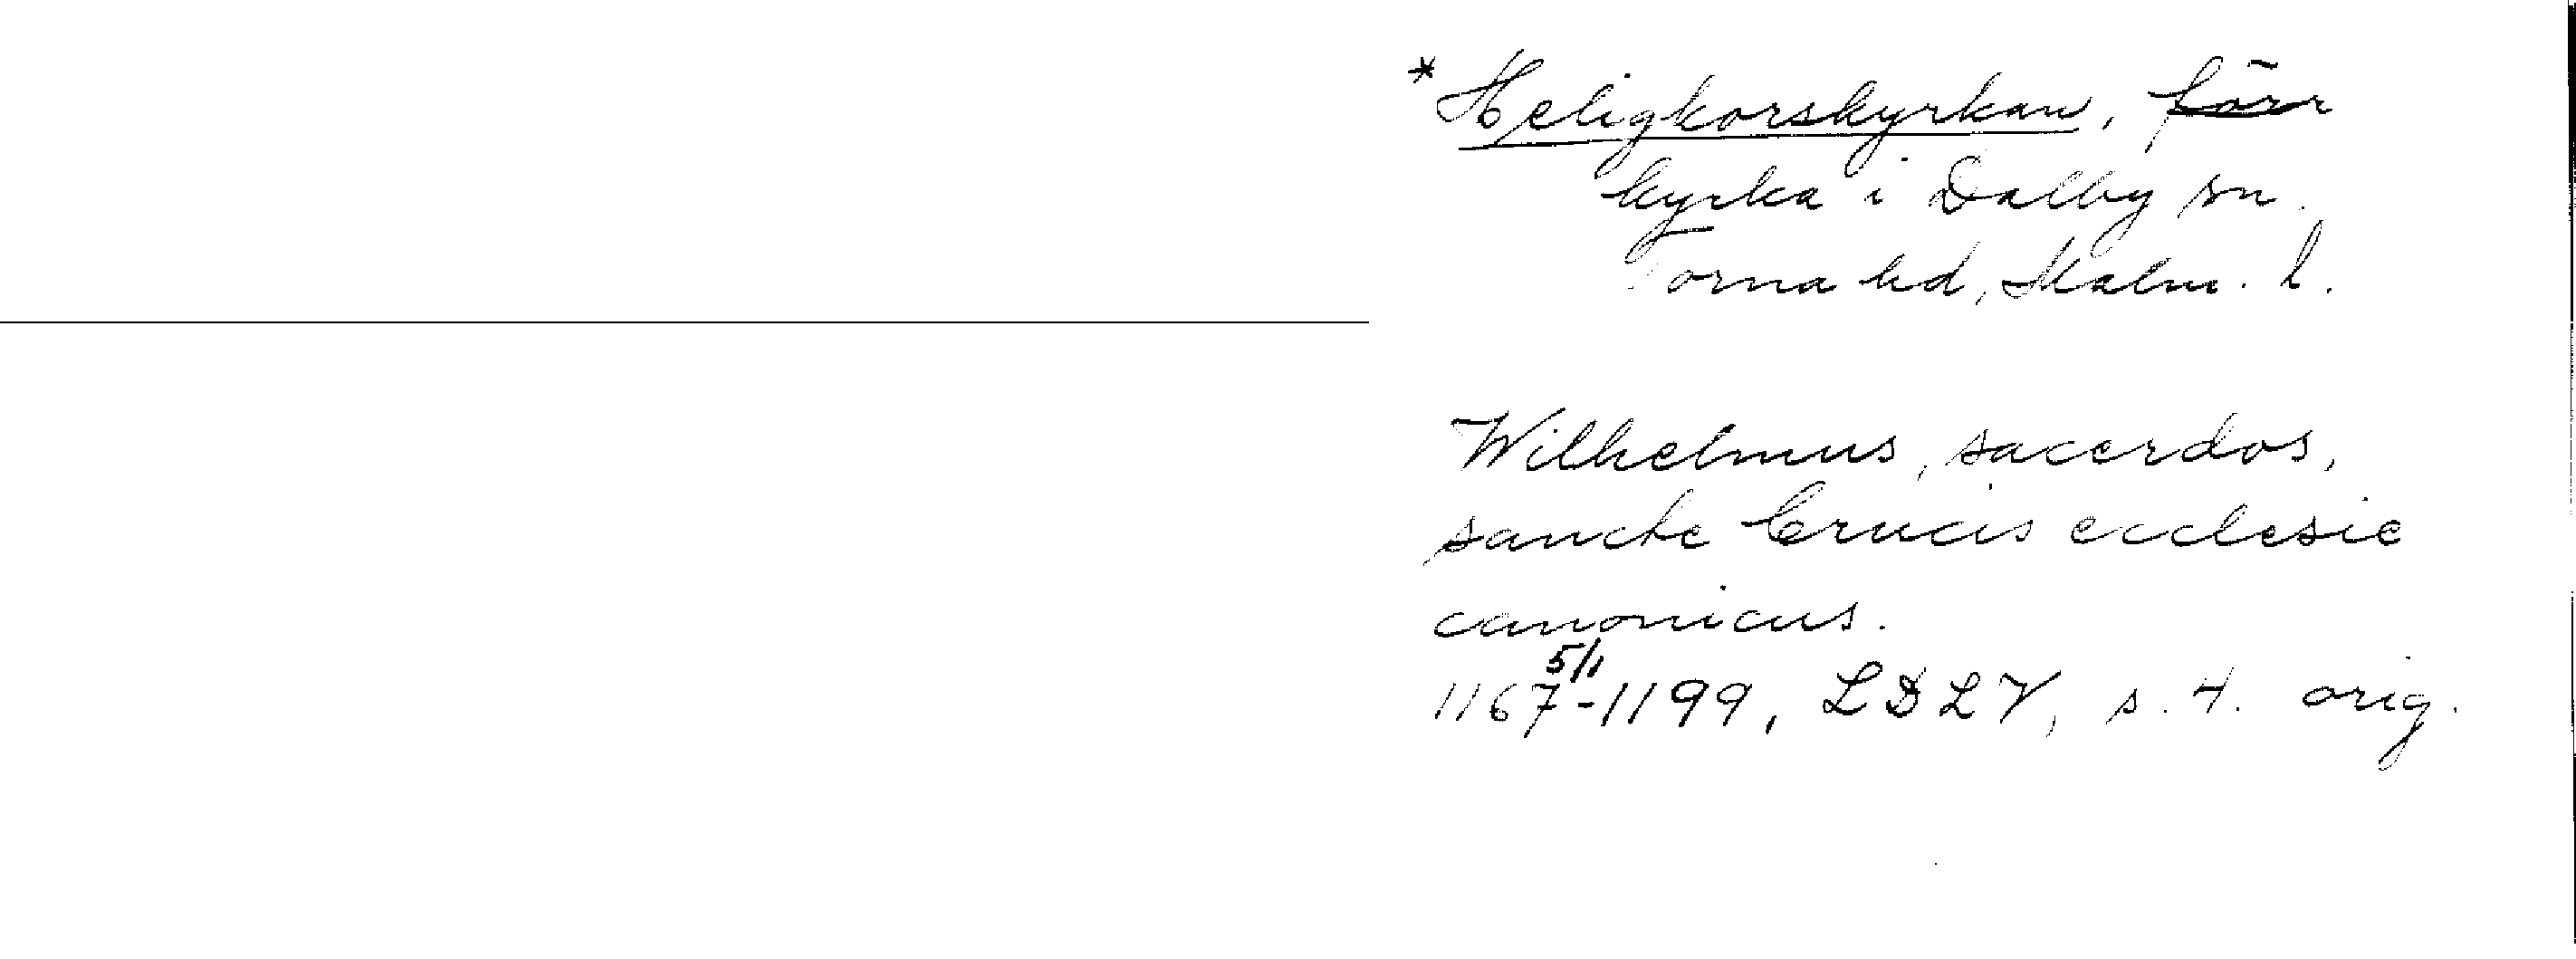 * Heligkorskyrkan, förr
kyrka i Dalby sn.
Torna hd, Malm. l.
Wilhelmus, sacerdos,
sancte Crucis ecclesie
canonicus.
1167 5/11 -1199, LDLV, s. 4. orig.